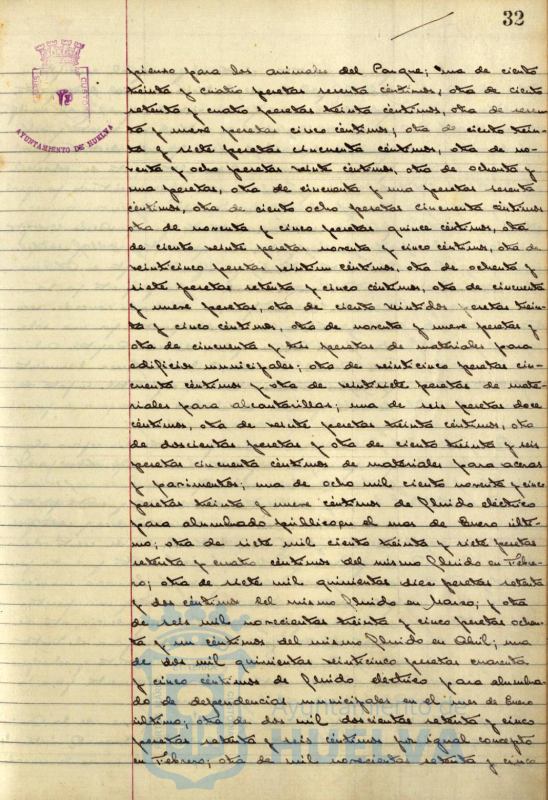 32
AYUNTAMIENTO DE HUELVA
pienso para los animales del Parque; una de ciento
treinta y cuatro pesetas sesenta céntimos, otra de ciento
setenta y cuatro pesetas treinta céntimos, otra de seten-
ta y nueve pesetas cinco céntimos; otra de ciento trein-
ta y siete pesetas cincuenta céntimos, otra de no-
venta y ocho pesetas veinte céntimos, otra de ochenta y
una pesetas, otra de cincuenta y una pesetas sesenta
céntimos, otra de ciento ocho pesetas cincuenta céntimos
otra de noventa y cinco pesetas quince céntimos, otra
de ciento veinte pesetas noventa y cinco céntimos, otra de
veinticinco pesetas veintiun céntimos, otra de ochenta y
siete pesetas setenta y cinco céntimos, otra de cincuenta
y nueve pesetas, otra de ciento veintidos pesetas trein-
ta y cinco céntimos, otra de noventa y nueve pesetas y
otra de cincuenta y tres pesetas de materiales para
edificios municipales; otra de veinticinco pesetas cin-
cuenta céntimos y otra de veintisiete pesetas de mate-
riales para alcantarillas; una de seis pesetas doce
céntimos, otra de veinte pesetas treinta céntimos, otra
de doscientas pesetas y otra de ciento treinta y seis
pesetas cincuenta céntimos de materiales para aceras
y pavimentos; una de ocho mil ciento noventa y cinco
pesetas treinta y nueve céntimos de fluido eléctrico
para alumbrado público en el mes de Enero últi-
mo; otra de siete mil ciento treinta y siete pesetas
setenta y cuatro céntimos del mismo fluido en Febre-
ro; otra de siete mil quinientas diez pesetas setenta
y dos céntimos del mismo fluido en Marzo; y otra
de seis mil novecientas treinta y cinco pesetas ochen-
ta y un céntimos del mismo fluido en Abril; una
de dos mil quinientas veinticinco pesetas cuarenta
y cinco céntimos de fluido eléctrico para alumbra-
do de dependencias municipales en el mes de Enero
último; otra de dos mil doscientas setenta y cinco
pesetas setenta y seis céntimos por igual concepto
en Febrero; otra de mil novecientas setenta y cinco
Ayuntamiento de
HUELVA